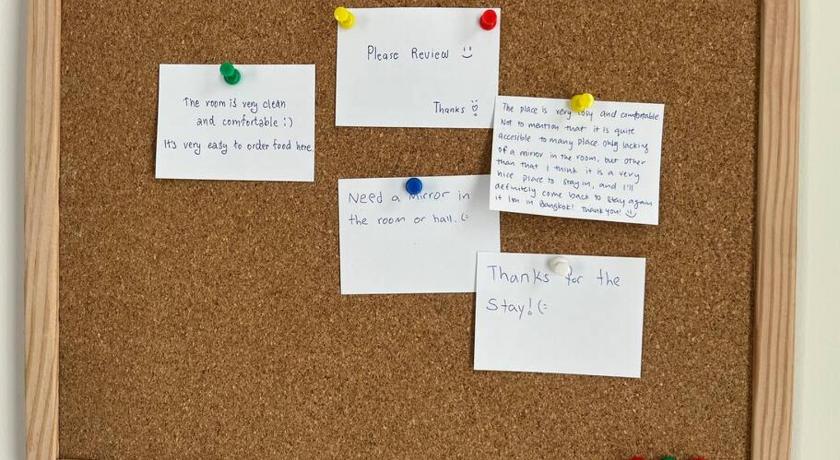 Please Review
Thanks
The room is very clean
and comfortable :)
It's very easy to order food here.
The place is very cosy and comfortable.
Not to mention that it is quite
accesible to many place only lacking
of a mirror in the room, but other
than that I think it is a very
nice place to stay in, and I'll
definetly come back to stay again
if I'm in Bangkok! Thank you!
Need a mirror in
the room or hall. (:
Thanks for the
Stay! (: